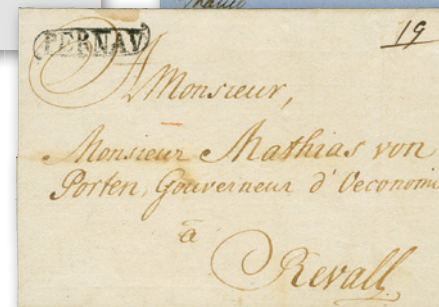 PERNAU
19
A Monsieur,
Monsieur Mathias von
Porten, Gouverneur d'Oeconomi
à
Revall